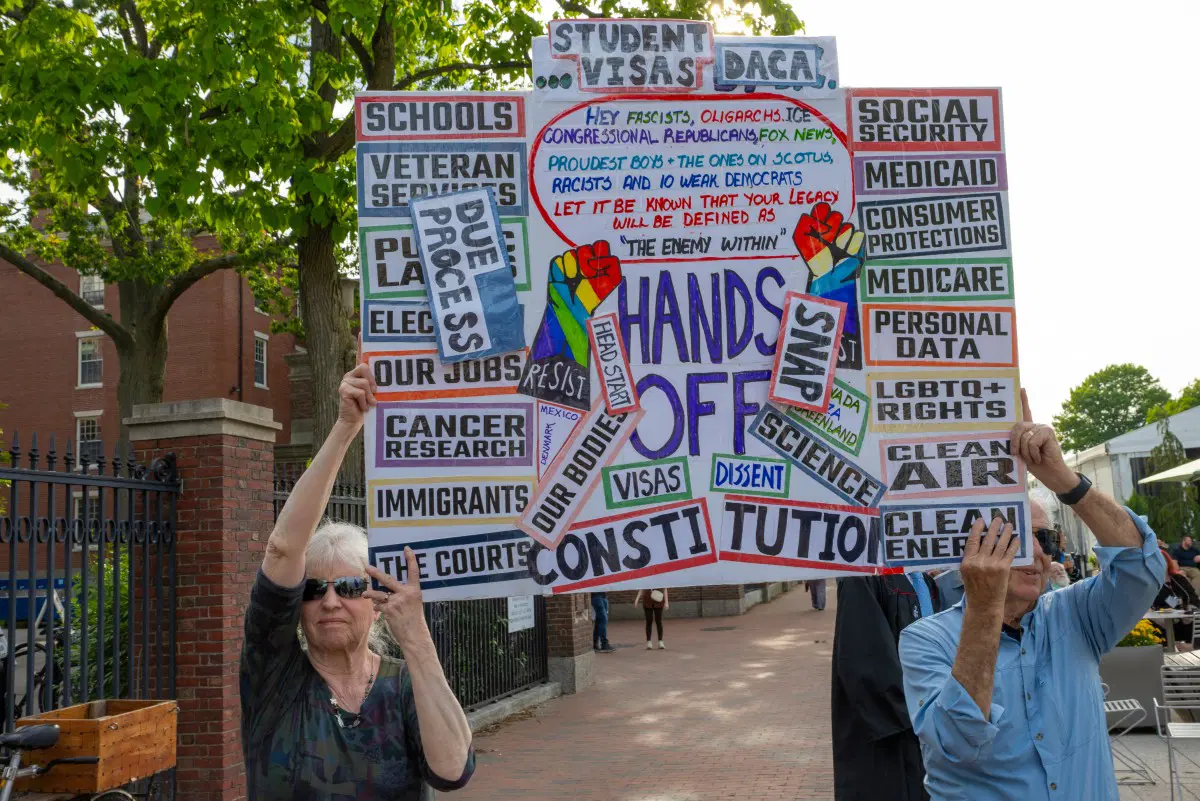 STUDENT
... VISAS
DACA
SCHOOLS
VETERAN
SERVICES
DUE
PROCESS
OUR JOBS
CANCER
RESEARCH
IMMIGRANTS
THE COURTS
HEY FASCISTS, OLIGARCHS. ICE
CONGRESSIONAL REPUBLICANS, FOX NEWS,
PROUDEST BOYS + THE ONES ON SCOTUS,
RACISTS AND 10 WEAK DEMOCRATS
LET IT BE KNOWN THAT YOUR LEGACY
WILL BE DEFINED AS
"THE ENEMY WITHIN"
HANDS
OFF
RESIST
HEAD START
MEXICO
DENMARK
OUR BODIES
SNAP
GREENLAND
SCIENCE
VISAS
DISSENT
CONSTITUTION
SOCIAL
SECURITY
MEDICAID
CONSUMER
PROTECTIONS
MEDICARE
PERSONAL
DATA
LGBTQ+
RIGHTS
CLEAN
AIR
CLEAN